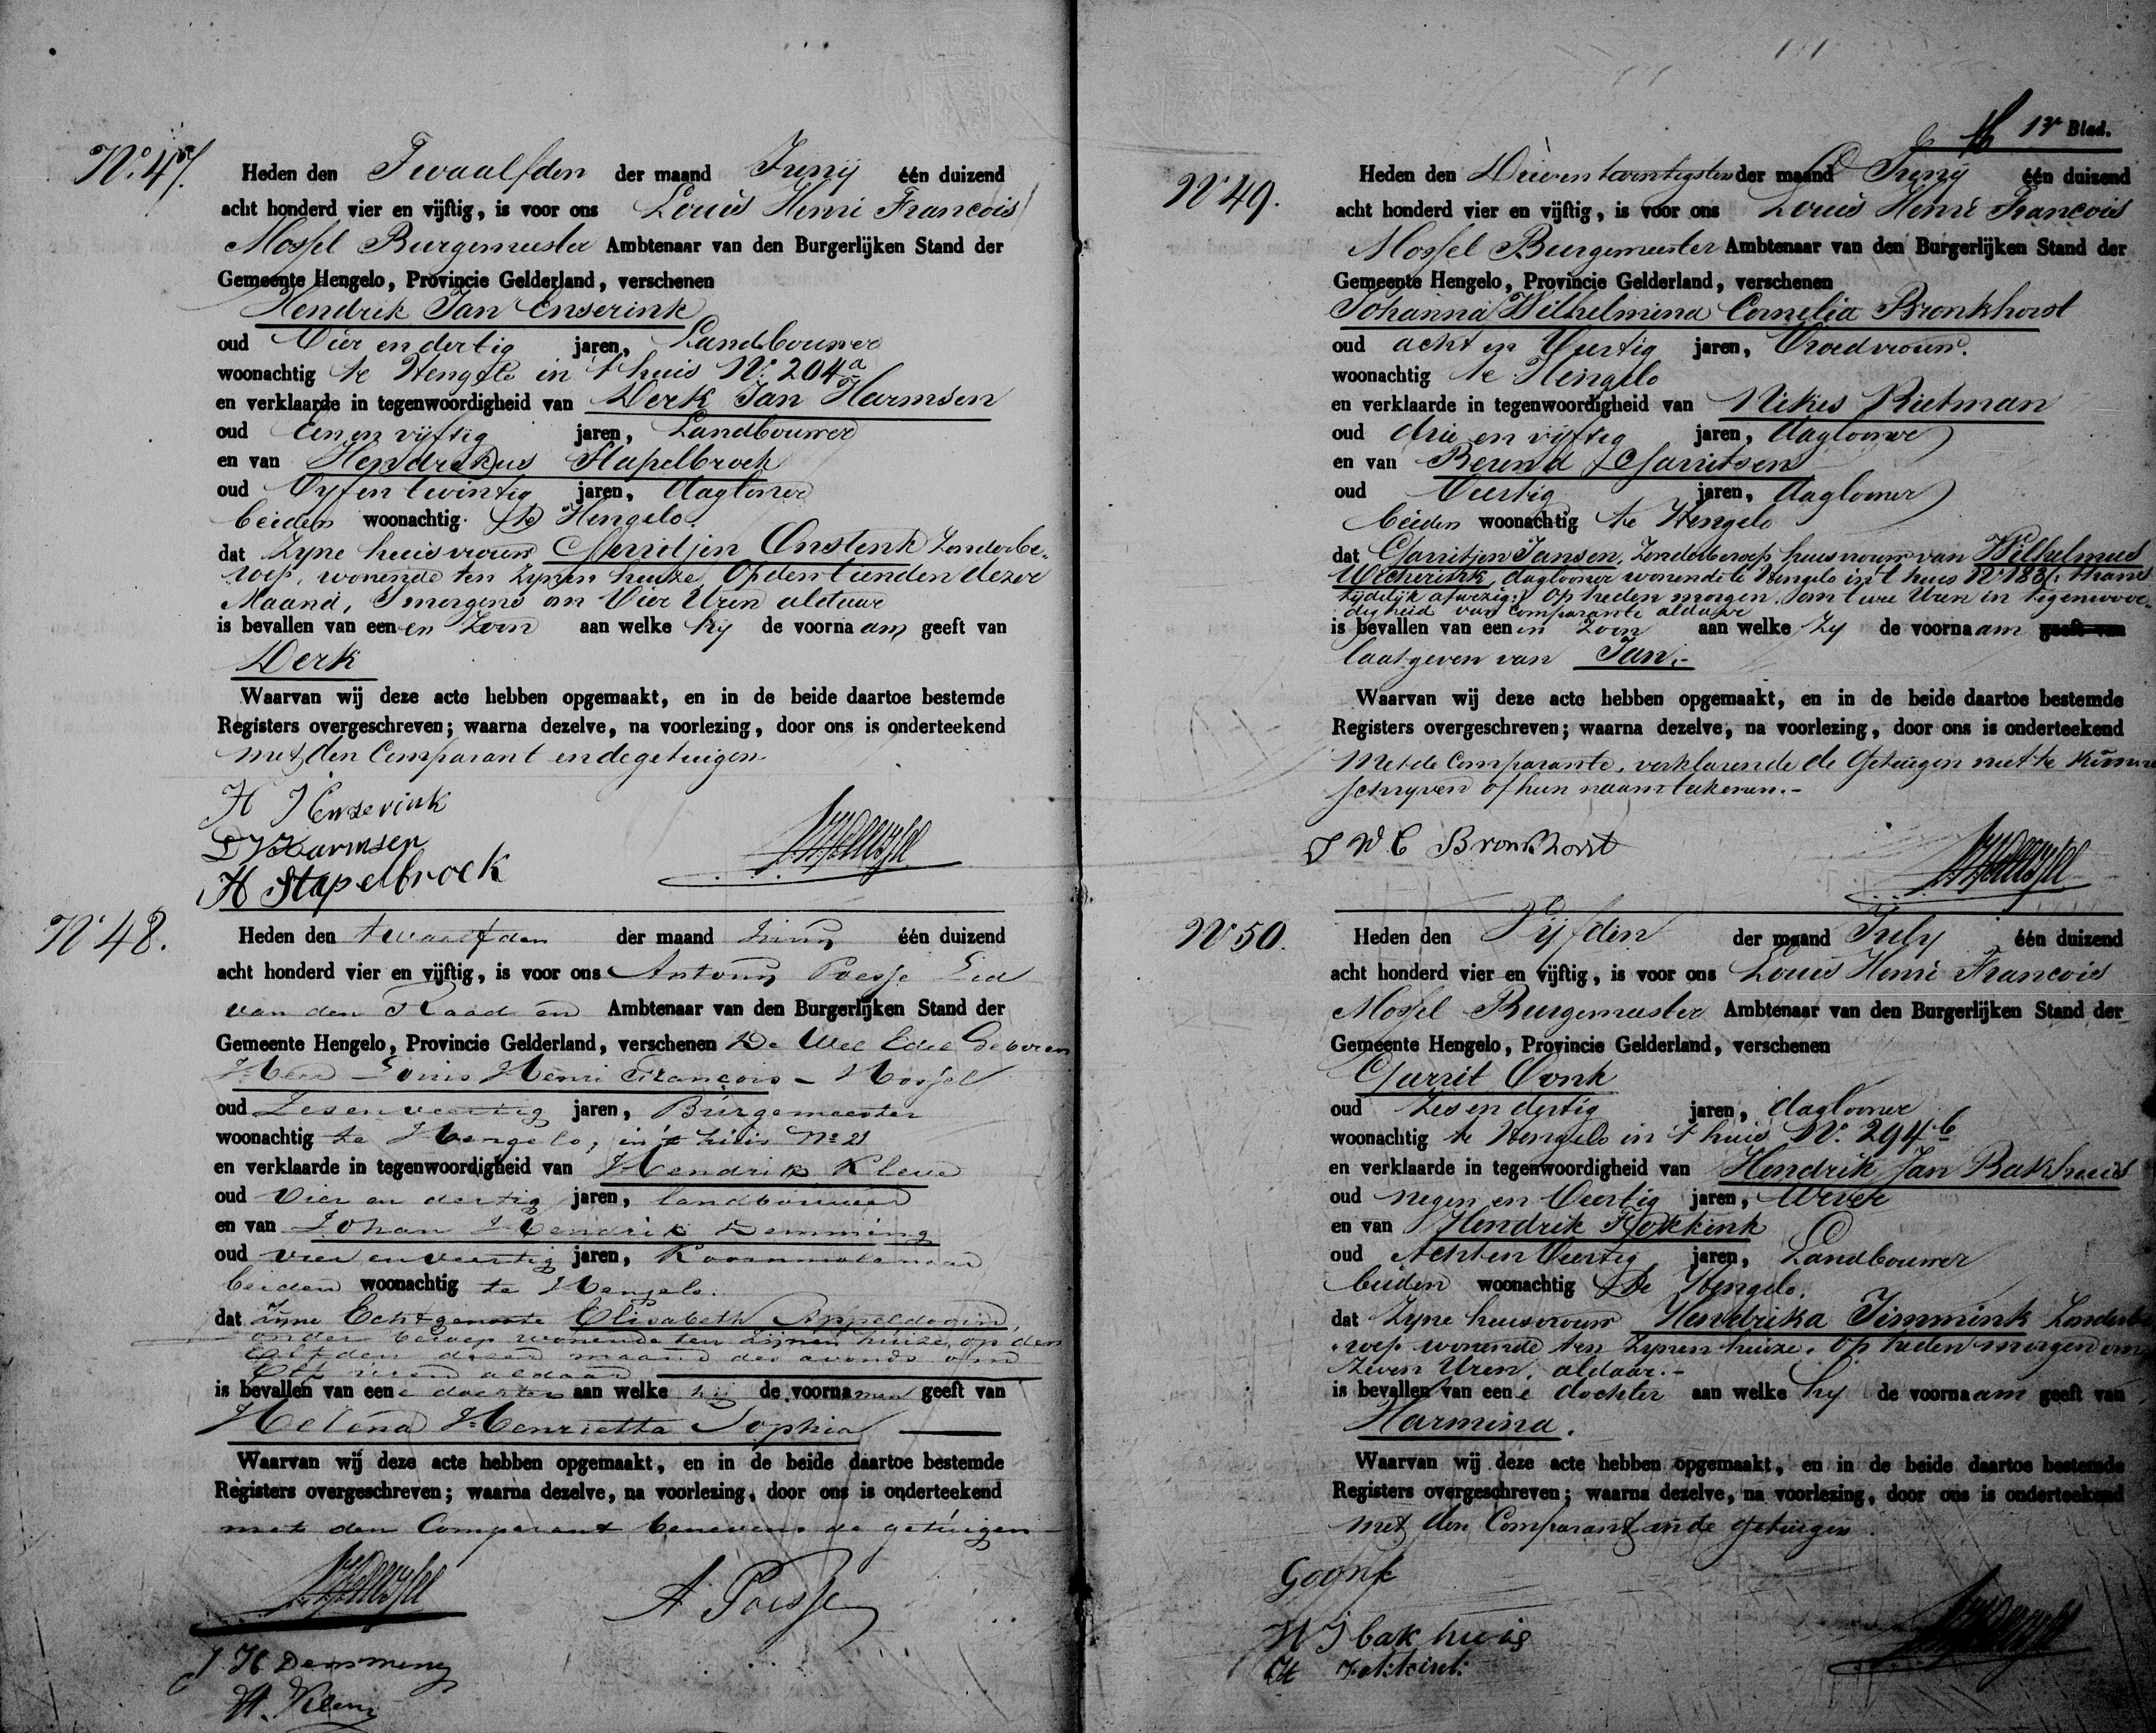 No. 47.
Heden den Twaalfden der maand Junij één duizend
acht honderd vier en vijftig, is voor ons Louis Henri Francois
Mossel Burgemeester Ambtenaar van den Burgerlijken Stand der
Gemeente Hengelo, Provincie Gelderland, verschenen
Hendrik Jan Enserink
oud Vier en dertig jaren, Landbouwer
woonachtig te Hengelo in 't huis No. 204a
en verklaarde in tegenwoordigheid van Derk Jan Harmsen
oud Een en vijftig jaren, Landbouwer
en van Hendrikus Stapelbroek
oud Vyf en twintig jaren, daglooner
beiden woonachtig te Hengelo.
dat Zyne huisvrouw Gerritjen Onstenk Zonderbe-
roep, wonende ten Zynen huize, Op den tienden dezer
Maand, S'morgens om Vier Uren aldaar
is bevallen van een en Zoon aan welke hy de voornaam geeft van
Derk
Waarvan wij deze acte hebben opgemaakt, en in de beide daartoe bestemde
Registers overgeschreven; waarna dezelve, na voorlezing, door ons is onderteekend
met den Comparant en de getuigen.
H J Enserink
D J Harmsen
H Stapelbroek
No 48.
Heden den twaalfden der maand Junij één duizend
acht honderd vier en vijftig, is voor ons Antony Poesse Lid
van den Raad en Ambtenaar van den Burgerlijken Stand der
Gemeente Hengelo, Provincie Gelderland, verschenen De Wel Edel Geboren
Heer Louis Henri François Mossel
oud Zesenveertig jaren, Burgemeester
woonachtig te Hengelo, in 't huis No 21
en verklaarde in tegenwoordigheid van Hendrik Kleve
oud Vier en dertig jaren, landbouwer
en van Johan Hendrik Demming
oud vier en veertig jaren, Koornmolenaar
beiden woonachtig te Hengelo.
dat Zyne Echtgenoote Elisabeth Appeldoorn,
zonder beroep wonende ten zijnen huize, op den
Elfden dezer maand des avonds om
Elf uren aldaar
is bevallen van eene dochter aan welke hij de voornamen geeft van
Helena Henrietta Sophia
Waarvan wij deze acte hebben opgemaakt, en in de beide daartoe bestemde
Registers overgeschreven; waarna dezelve, na voorlezing, door ons is onderteekend
met den Comparant benevens de getuigen
A Poesse
J H Demming
H. Kleve
13e Blad.
No 49.
Heden den Drieentwintigsten der maand Junij één duizend
acht honderd vier en vijftig, is voor ons Louis Henri Francois
Mossel Burgemeester Ambtenaar van den Burgerlijken Stand der
Gemeente Hengelo, Provincie Gelderland, verschenen
Johanna Wilhelmina Cornelia Bronkhorst
oud acht en Veertig jaren, Vroedvrouw.
woonachtig te Hengelo
en verklaarde in tegenwoordigheid van Rietman
oud drie en vyftig jaren, daglooner
en van Berend Garritsen
oud Veertig jaren, daglooner
beiden woonachtig te Hengelo
dat Garritjen Jansen, Zonderberoep, huisvrouw van Wilhelmus
Wicherink, daglooner wonende te Hengelo in't huis No 183, thans
tijdelijk afwezig, Op heden morgen, om twee Uren in tegenwoor-
digheid van Comparante aldaar
is bevallen van een en Zoon aan welke Zy de voornaam geeft van
laat geven van Jan.-
Waarvan wij deze acte hebben opgemaakt, en in de beide daartoe bestemde
Registers overgeschreven; waarna dezelve, na voorlezing, door ons is onderteekend
Met de Comparante, verklarende de Getuigen niet te kunnen
schryven of hun naam teekenen.-
J W C Bronkhorst
No 50.
Heden den Vyfden der maand July één duizend
acht honderd vier en vijftig, is voor ons Louis Henri Francois
Mossel Burgemeester Ambtenaar van den Burgerlijken Stand der
Gemeente Hengelo, Provincie Gelderland, verschenen
Garrit Oonk
oud Zes en dertig jaren, daglooner
woonachtig te Hengelo in 't huis No. 294b
en verklaarde in tegenwoordigheid van Hendrik Jan Bakhuis
oud negen en Veertig jaren, Wever
en van Hendrik Fokkink
oud Acht en Veertig jaren, Landbouwer
beiden woonachtig te Hengelo.
dat Zyne huisvrouw Hendrika Timmink Zonderbe
roep, wonende ten Zynen huize, Op heden morgen om
Zeven Uren, aldaar.-
is bevallen van eene dochter aan welke hy de voornaam geeft van
Harmina.
Waarvan wij deze acte hebben opgemaakt, en in de beide daartoe bestemde
Registers overgeschreven; waarna dezelve, na voorlezing, door ons is onderteekend
met den Comparant en de getuigen.
G Oonk
H J bakhuis
H Fokkink